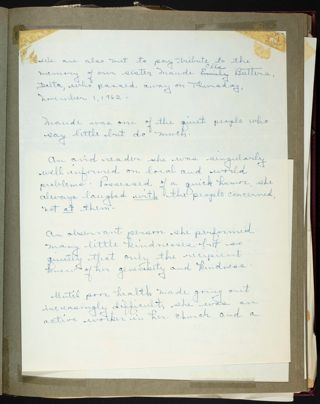 We are also met to pay tribute to the
Elle
memory of our sister Maude Emily Butters,
Delta, who passed away on Thursday,
November 1, 1962.
Maude was one of the quiet people who
say little but do much.
An avid reader she was singularly
well informed on local and world
problems. Possessed of a quick humor she
always laughed with the people concerned,
not at them.
An observant person she performed
many little kindnesses but so
quietly that only the recipient
knew of her generosity and kindness.
Until poor health made going out
increasingly difficult, she was an
active worker in her church and a